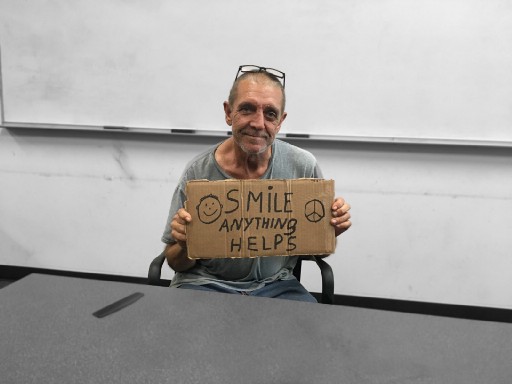 SMiLE
ANYTHING
HELPS